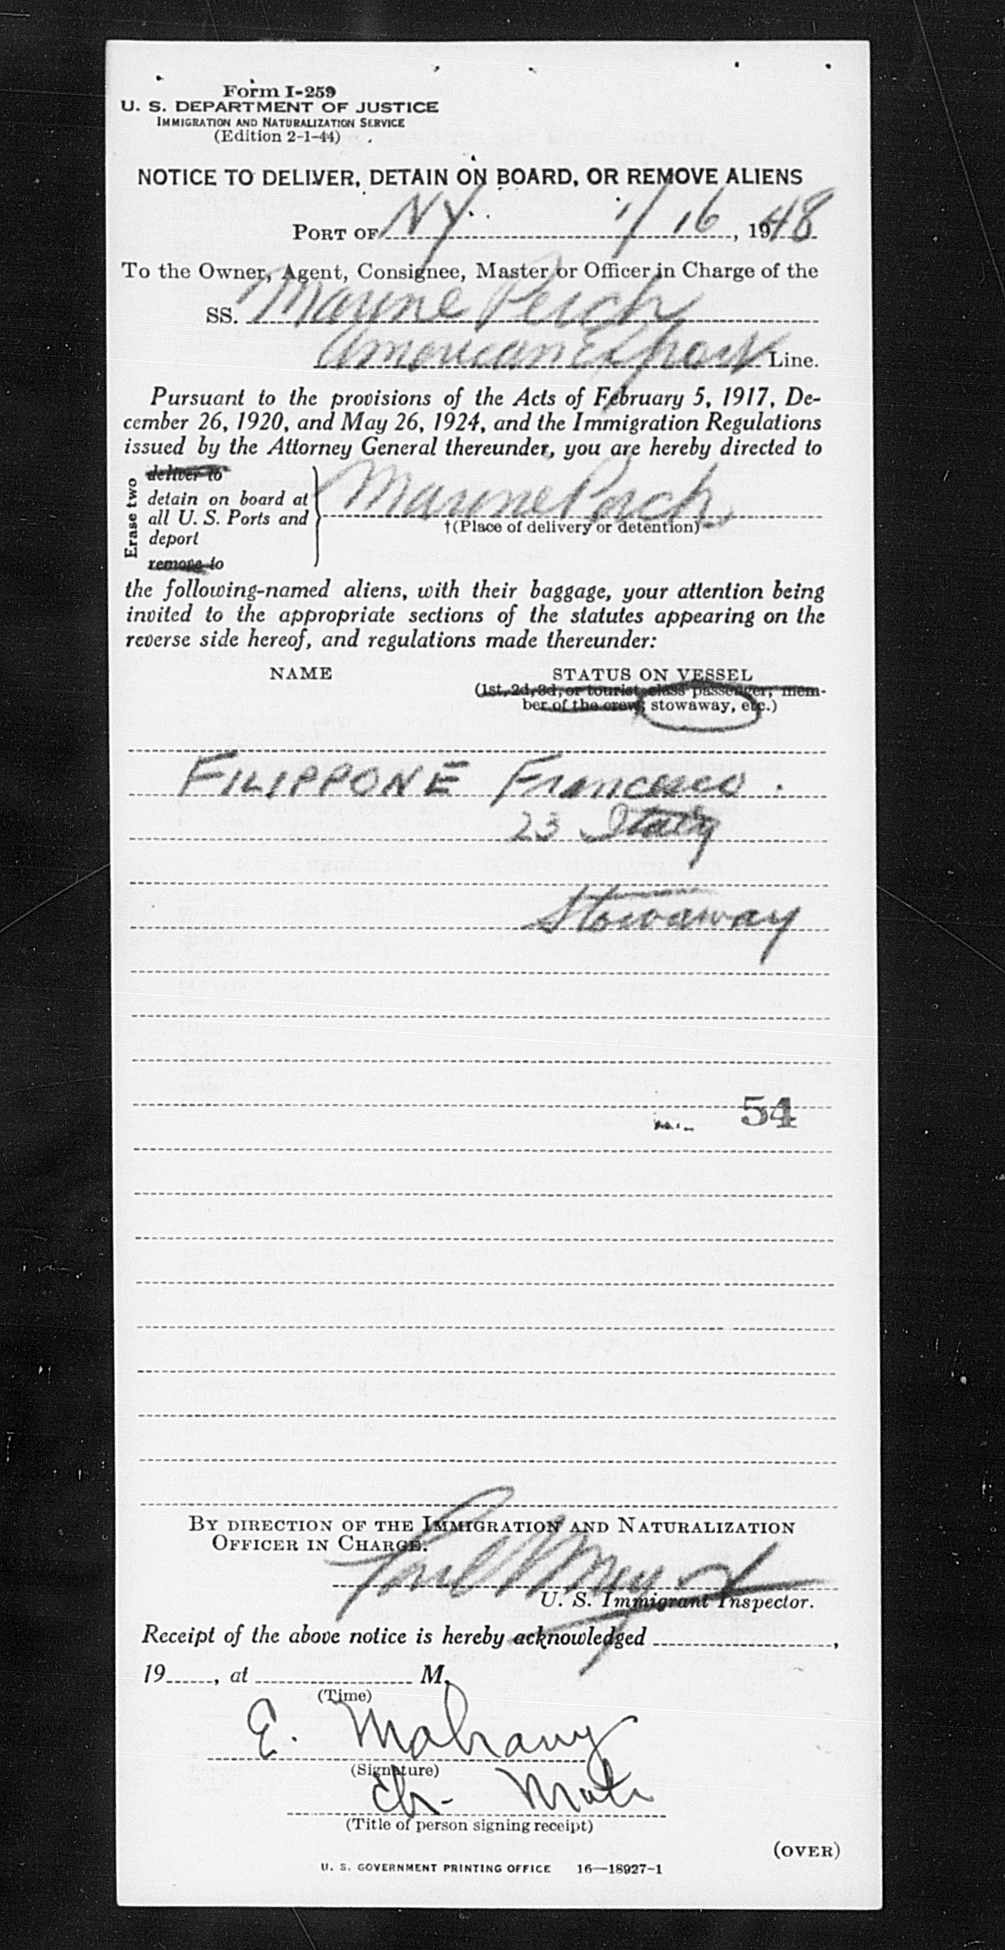 Form I-259
U. S. DEPARTMENT OF JUSTICE
IMMIGRATION AND NATURALIZATION SERVICE
(Edition 2-1-44)
NOTICE TO DELIVER, DETAIN ON BOARD, OR REMOVE ALIENS
PORT OF NY 1/16, 1948
To the Owner, Agent, Consignee, Master or Officer in Charge of the
SS. Marine Perch
American Export Line.
Pursuant to the provisions of the Acts of February 5, 1917, De-
cember 26, 1920, and May 26, 1924, and the Immigration Regulations
issued by the Attorney General thereunder, you are hereby directed to
Erase two
deliver to
detain on board at
all U. S. Ports and
deport
remove to
Marine Perch
†(Place of delivery or detention)
the following-named aliens, with their baggage, your attention being
invited to the appropriate sections of the statutes appearing on the
reverse side hereof, and regulations made thereunder:
NAME STATUS ON VESSEL
(1st, 2d, 3d, or tourist class passenger, mem-
ber of the crew, stowaway, etc.)
FILIPPONE Francesco.
23 Italy
Stowaway
54
BY DIRECTION OF THE IMMIGRATION AND NATURALIZATION
OFFICER IN CHARGE:
Paul
U. S. Immigrant Inspector.
Receipt of the above notice is hereby acknowledged ,
19 , at M.
(Time)
E. Mahany
(Signature)
Ch. Mate
(Title of person signing receipt)
(OVER)
U. S. GOVERNMENT PRINTING OFFICE 16—18927-1